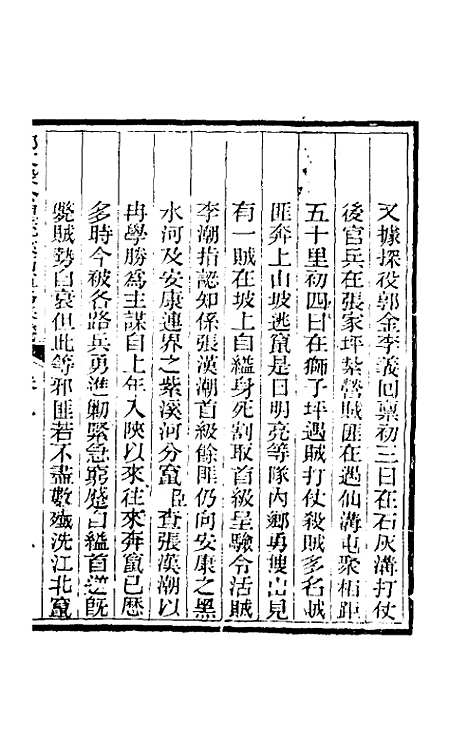 又據探役郭金李義回稟初三日在石灰溝打仗
後官兵在張家坪紮營賊匪在遇仙溝屯聚相距
五十里初四日在獅子坪遇賊打仗殺賊多名賊
匪奔上山坡逃竄是日明亮等隊內鄉勇搜出見
有一賊在坡上自縊身死割取首級呈驗令活賊
李潮指認知係張漢潮首級餘匪仍向安康之黑
水河及安康連界之紫溪河分竄臣查張漢潮以
冉學勝為主謀自上年入陝以來往來奔竄已歷
多時今被各路兵勇進勦緊急窮蹙自縊首逆既
斃賊勢自衰但此等邪匪若不盡數殲洗江北竄